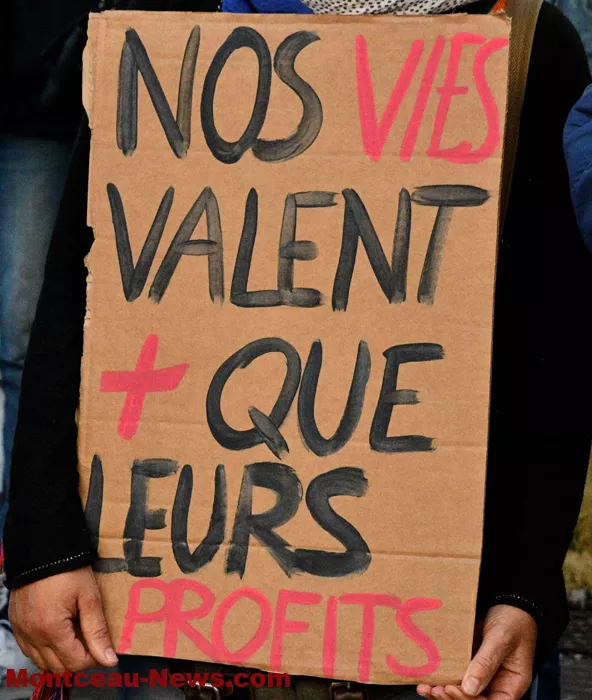 NOS VIES
VALENT
+ QUE
LEURS
PROFITS
Montceau-News.com